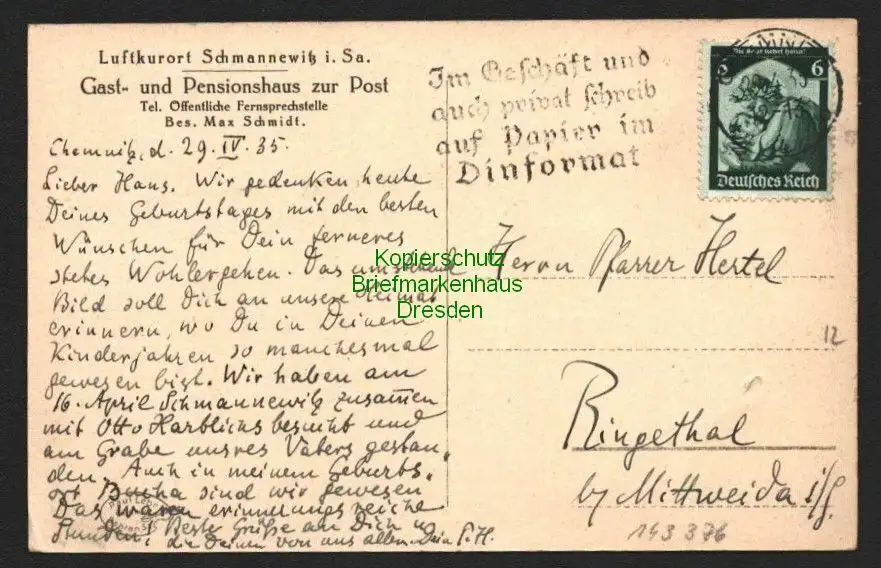 Luftkurort Schmannewitz i. Sa.
Gast- und Pensionshaus zur Post
Tel. Öffentliche Fernsprechstelle
Bes. Max Schmidt.
Chemnitz, d. 29. IV. 35.
Lieber Hans. Wir gedenken heute
Deines Geburtstages mit den besten
Wünschen für Dein ferneres
stetes Wohlergehen. Das umstehende
Bild soll Dich an unsere Heimat
erinnern, wo Du in Deinen
Kinderjahren so manchesmal
gewesen bist. Wir haben am
16. April Schmannewitz zusammen
mit Otto Harblichs besucht und
am Grabe unsres Vaters gestan-
den. Auch in meinem Geburts-
ort Bucha sind wir gewesen
Das waren erinnerungsreiche
Stunden! Beste Grüße an Dich u
die Deinen von uns allen. Dein P. H.
Im Geschäft und
auch privat schreib
auf Papier im
Dinformat
6
Deutsches Reich
Kopierschutz
Briefmarkenhaus
Dresden
Herrn Pfarrer Hertel
12
Ringethal
by Mittweida i/S.
143 376